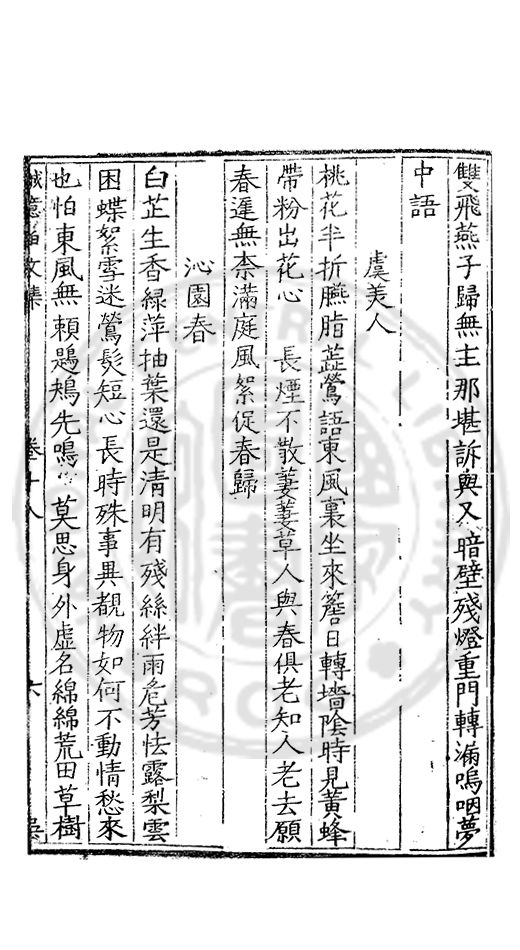 雙飛燕子歸無主那堪訴與又暗壁殘燈重門轉漏嗚咽夢
中語
虞美人
桃花半折臙脂蕋鶯語東風裏坐來簷日轉墻陰時見黃蜂
帶粉出花心　長煙不散萋萋草人與春俱老知人老去願
春遲無柰滿庭風絮促春歸
沁園春
白芷生香綠萍抽葉還是淸明有殘絲絆雨危芳怯露梨雲
困蝶絮雪迷鶯髮短心長時殊事異覩物如何不動情愁來
也怕東風無賴鶗鴂先鳴　莫思身外虛名綿綿荒田草樹
誠意伯文集　卷十八　六